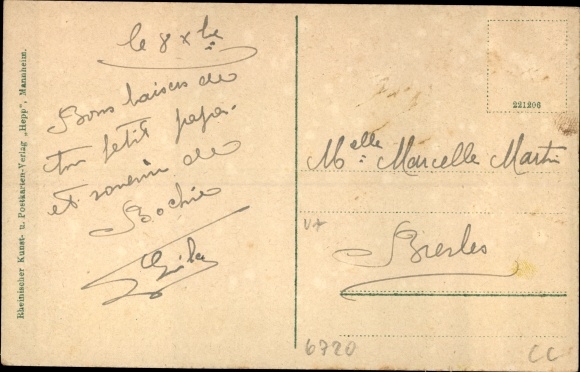 le 8 xbre
Bons baisers de
ton petit papa
et souvenir de
Bochie
221206
Melle: Marcelle Martin
Bresles
6720
CC
Rheinischer Kunst- u. Postkarten-Verlag „Hepp", Mannheim.